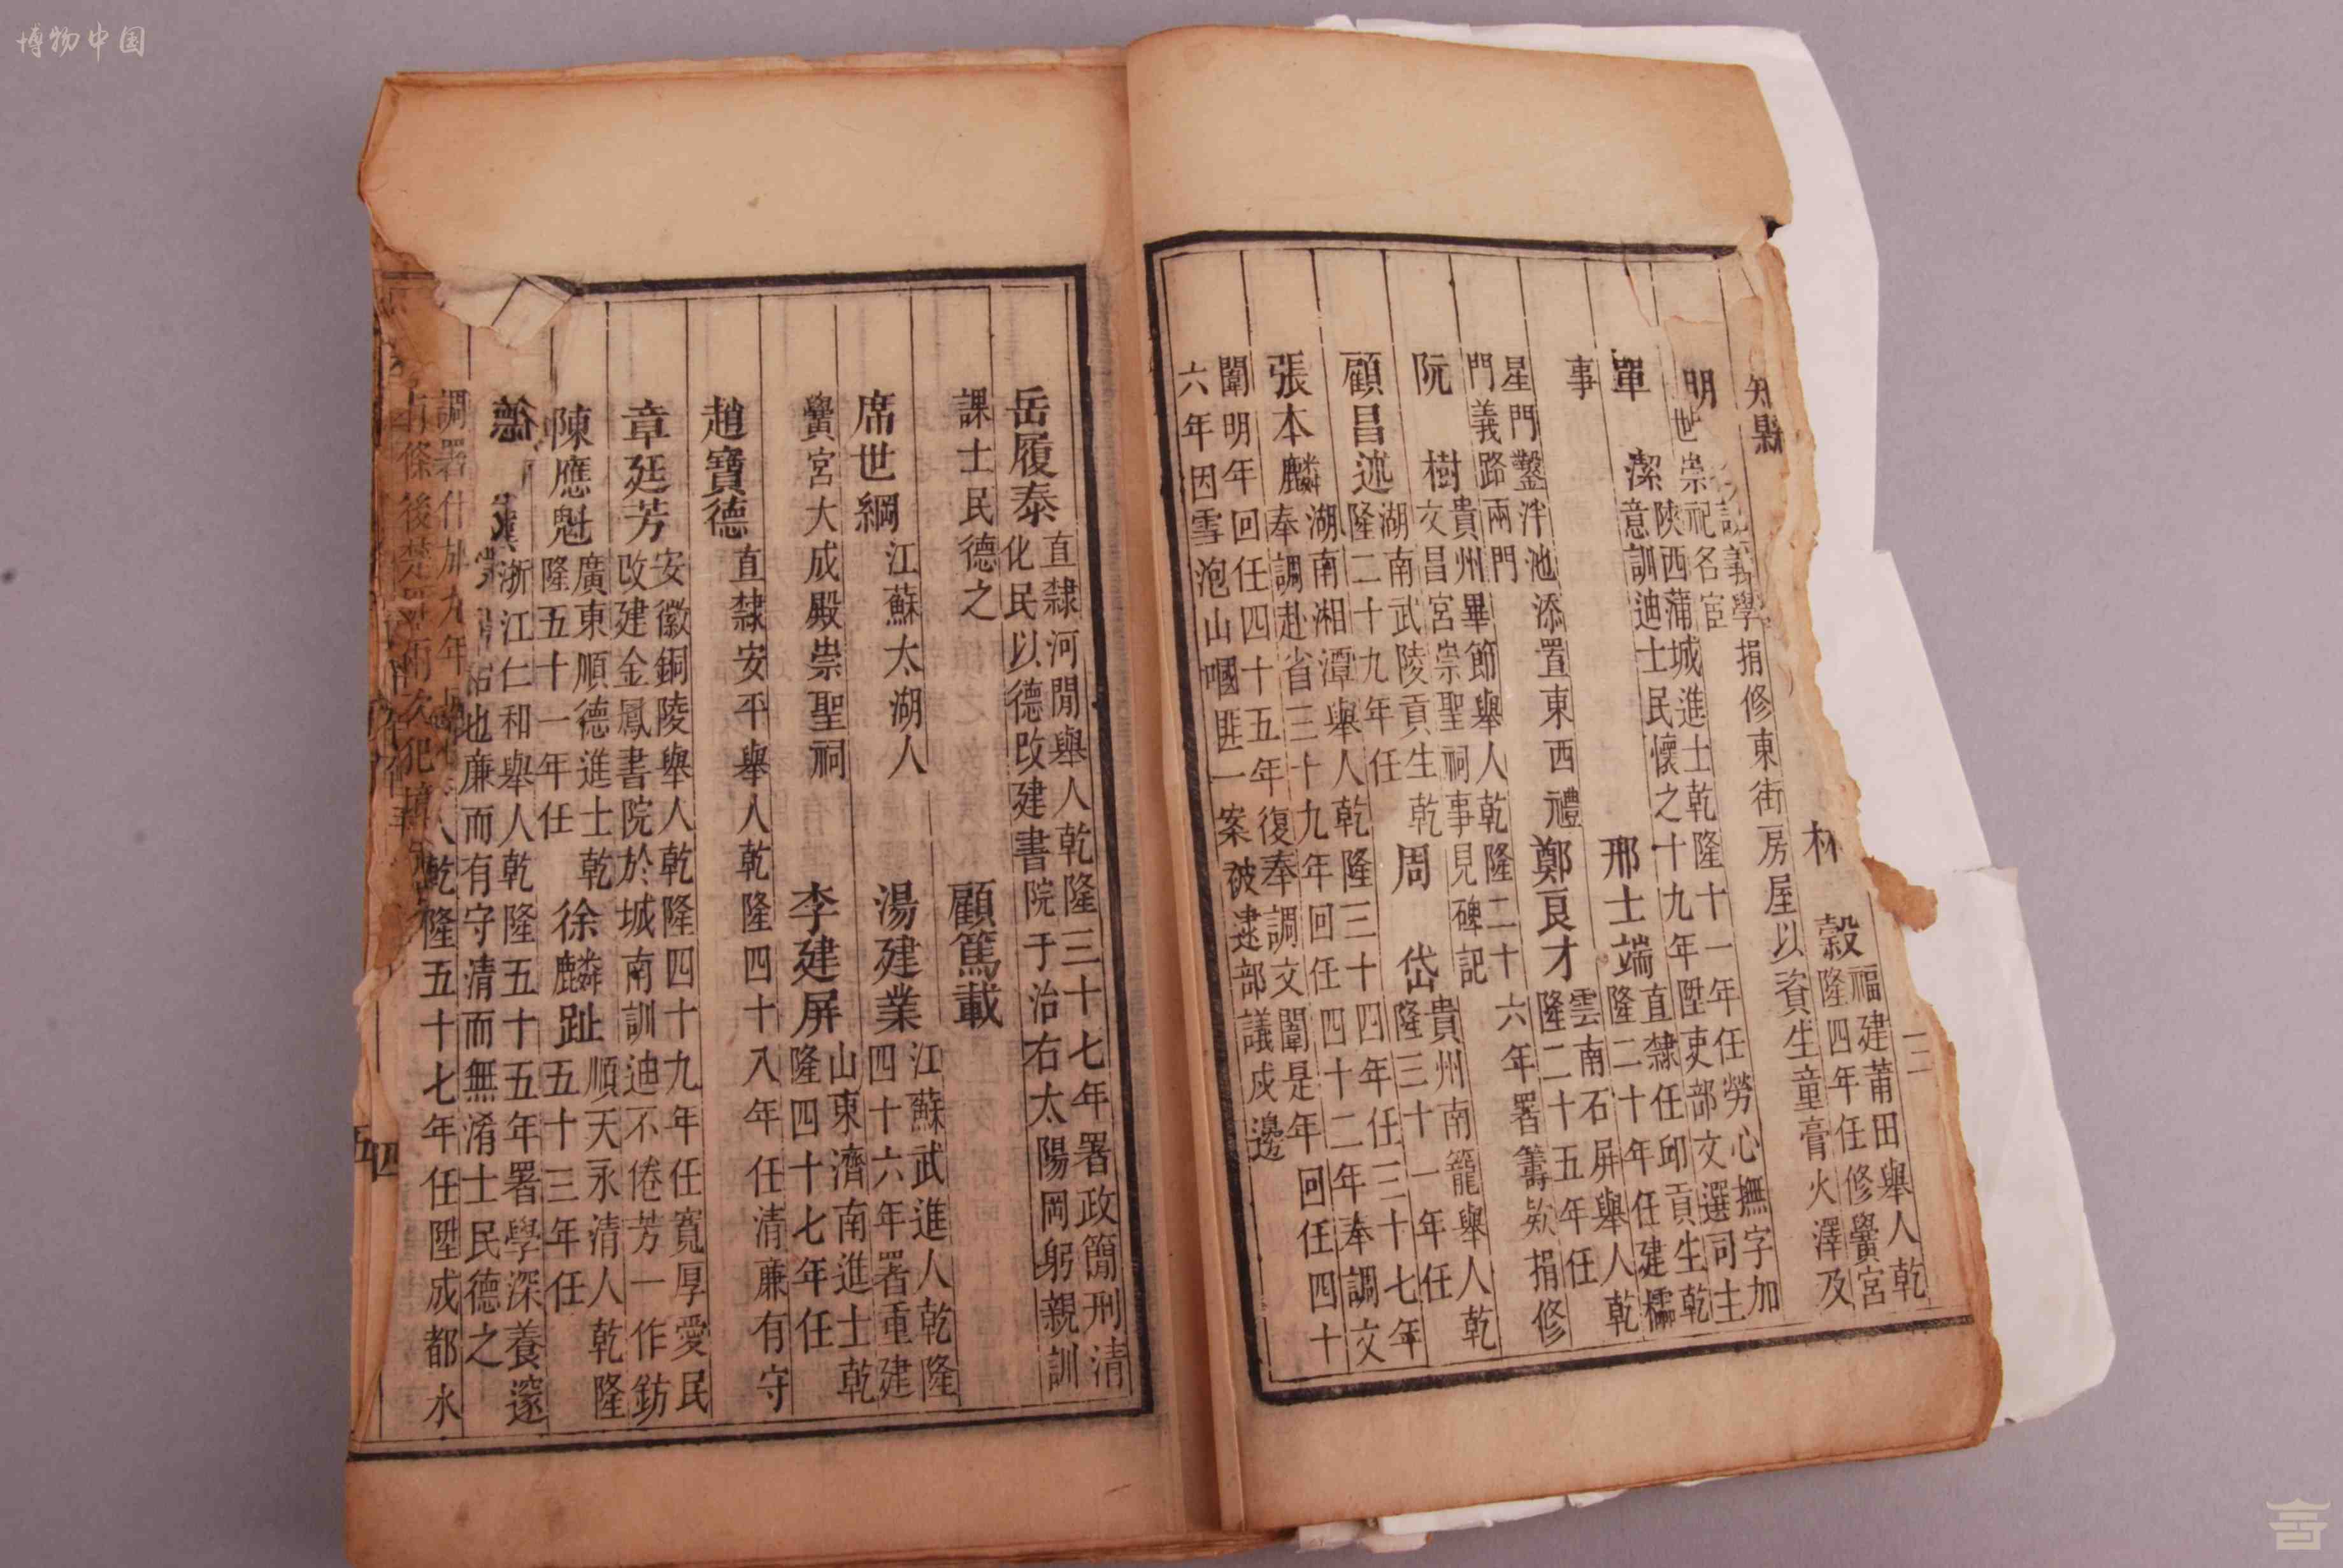 博物中国
知縣
林穀福建莆田舉人乾
隆四年任修黌宮
義學捐修東街房屋以資生童膏火澤及
明
世崇祀名宦
單潔陝西蒲城進士乾隆十一年任勞心撫字加
意訓迪士民懷之十九年陞吏部文選司主
事
邢士端直隸任邱貢生乾
隆二十年任建櫺
星門鑿泮池添置東西禮
門義路兩門
鄭良才雲南石屏舉人乾
隆二十五年任
阮樹貴州畢節舉人乾隆二十六年署籌欵捐修
文昌宮崇聖祠事見碑記
顧昌述湖南武陵貢生乾
隆二十九年任
周岱貴州南籠舉人乾
隆三十一年任
張本麟湖南湘潭舉人乾隆三十四年任三十七年
奉調赴省三十九年回任四十二年奉調文
闈明年回任四十五年復奉調文闈是年回任四十
六年因雪泡山嘓匪一案被逮部議戍邊
岳履泰直隸河間舉人乾隆三十七年署政簡刑清
化民以德改建書院于治右太陽岡躬親訓
課士民德之
顧篤載
席世綱江蘇太湖人
湯建業江蘇武進人乾隆
四十六年署重建
黌宮大成殿崇聖祠
李建屏山東濟南進士乾
隆四十七年任
趙寶德直隸安平舉人乾隆四十八年任清亷有守
章廷芳安徽銅陵舉人乾隆四十九年任寬厚愛民
改建金鳳書院於城南訓迪不倦芳一作鈁
陳應魁廣東順德進士乾
隆五十一年任
徐麟趾順天永清人乾隆
五十三年任
浙江仁和舉人乾隆五十五年署學深養邃
也亷而有守清而無淆士民德之
乾隆五十七年任陞成都水
調署什邡九年
四